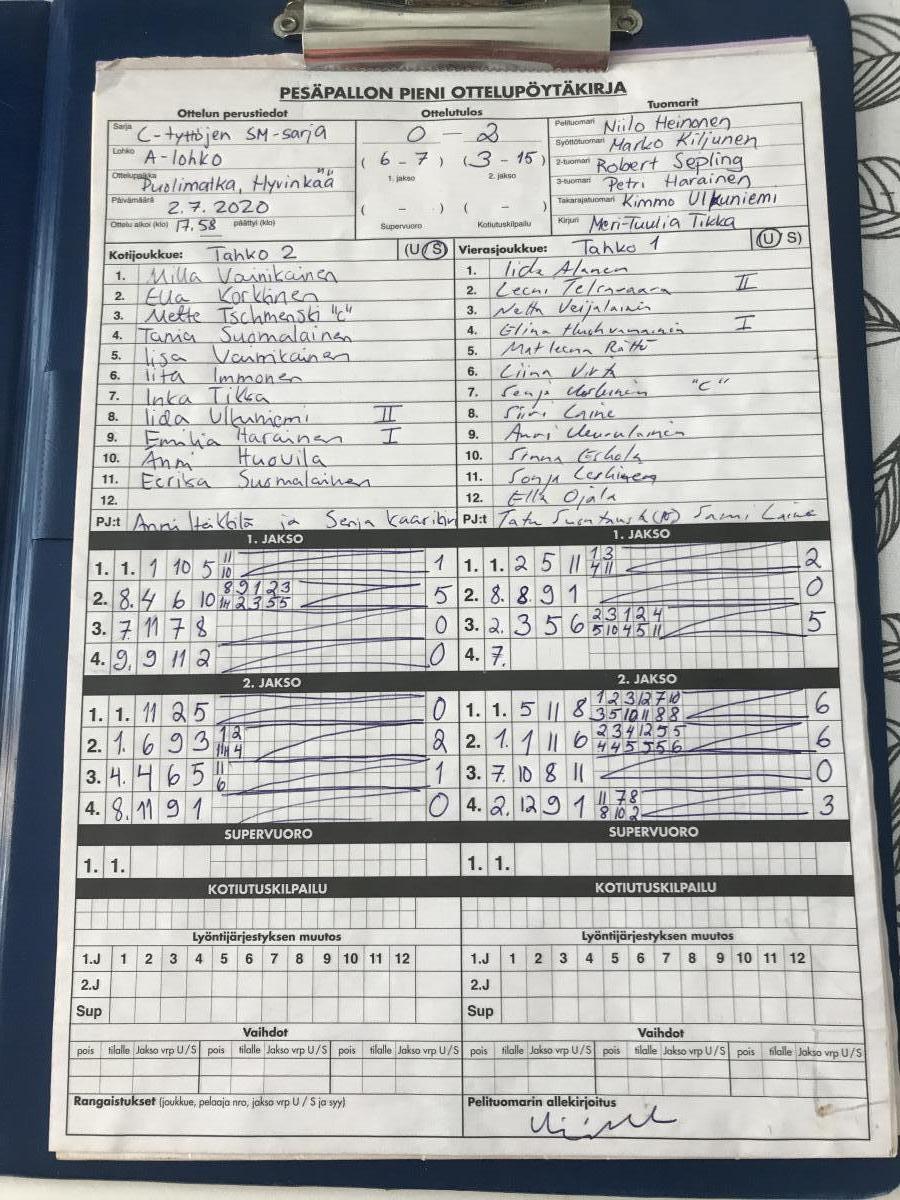 PESÄPALLON PIENI OTTELUPÖYTÄKIRJA
Ottelun perustiedot
Sarja C-tyttöjen SM-sarja
Lohko A-lohko
Ottelupaikka Puolimatka, Hyvinkää
Päivämäärä 2.7.2020
Ottelu alkoi (klo) 17.58 päättyi (klo)
Ottelutulos
0 - 2
( 6 - 7 ) ( 3 - 15 )
1. jakso 2. jakso
( - ) ( - )
Supervuoro Kotiutuskilpailu
Tuomarit
Pelituomari Niilo Heinonen
Syöttötuomari Marko Kiljunen
2-tuomari Robert Sepling
3-tuomari Petri Harainen
Takarajatuomari Kimmo Ulkuniemi
Kirjuri Meri-Tuulia Tikka
Kotijoukkue: Tahko 2 (U S)
1. Milla Vainikainen
2. Ella Korkkinen
3. Mette Tschmenski "C"
4. Tania Suomalainen
5. Iisa Vainikainen
6. Iita Immonen
7. Inka Tikka
8. Iida Ulkuniemi II
9. Emilia Harainen I
10. Anni Huovila
11. Eerika Suomalainen
12.
PJ:t Anni ja Senja
Vierasjoukkue: Tahko 1 (U S)
1. Iida Alanen
2. Leeni II
3. Netta Veijalainen
4. Elina I
5. Matleena Rättö
6. Liina Virta
7. Senja "C"
8. Siiri Laine
9. Anni
10. Sinna Eskola
11. Sonja
12. Ella Ojala
PJ:t Tatu Sami Laine
1. JAKSO
1. 1. 1 10 5 11 1
10
2. 8. 4 6 10 8 9 1 2 3 5
11 2 3 5 5
3. 7. 11 7 8 0
4. 9. 9 11 2 0
1. JAKSO
1. 1. 2 5 11 1 3 2
4 11
2. 8. 8 9 1 0
3. 2. 3 5 6 2 3 1 2 4 5
5 10 4 5 11
4. 7.
2. JAKSO
1. 1. 11 2 5 0
2. 1. 6 9 3 1 2 2
11 4
3. 4. 4 6 5 11 1
6
4. 8. 11 9 1 0
2. JAKSO
1. 1. 5 11 8 1 2 3 12 7 10 6
3 5 10 11 8 8
2. 1. 1 11 6 2 3 4 12 5 5 6
4 4 5 5 5 6
3. 7. 10 8 11 0
4. 2. 12 9 1 11 7 8 3
8 10 2
SUPERVUORO
1. 1.
SUPERVUORO
1. 1.
KOTIUTUSKILPAILU
KOTIUTUSKILPAILU
Lyöntijärjestyksen muutos
1.J 1 2 3 4 5 6 7 8 9 10 11 12
2.J
Sup
Lyöntijärjestyksen muutos
1.J 1 2 3 4 5 6 7 8 9 10 11 12
2.J
Sup
Vaihdot
pois tilalle Jakso vrp U/S pois tilalle Jakso vrp U/S pois tilalle Jakso vrp U/S
Vaihdot
pois tilalle Jakso vrp U/S pois tilalle Jakso vrp U/S pois tilalle Jakso vrp U/S
Rangaistukset (joukkue, pelaaja nro, jakso vrp U / S ja syy)
Pelituomarin allekirjoitus